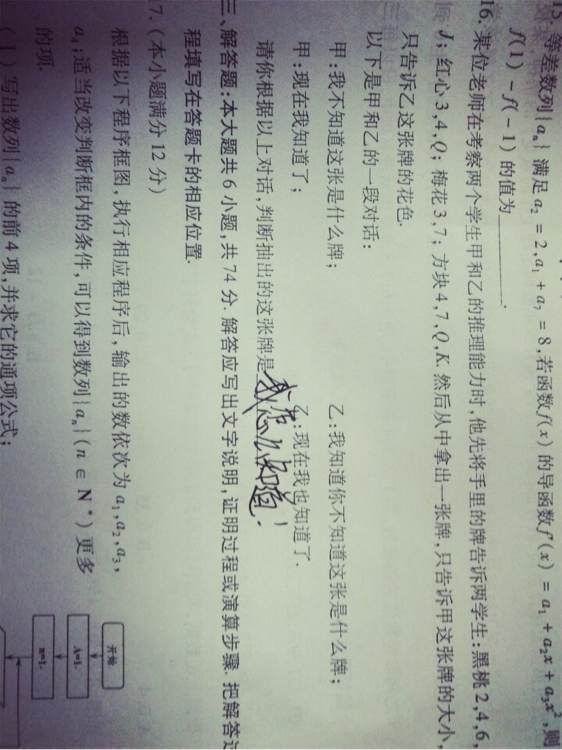 15. 等差数列{aₙ}满足 a₂=2,a₁+a₇=8,若函数f(x)的导函数f′(x)=a₁+a₂x+a₃x²,则
f(1)-f(-1)的值为______.
16. 某位老师在考察两个学生甲和乙的推理能力时,他先将手里的牌告诉两学生:黑桃2,4,6,
J;红心3,4,Q;梅花3,7;方块4,7,Q,K.然后从中拿出一张牌,只告诉甲这张牌的大小,
只告诉乙这张牌的花色.
以下是甲和乙的一段对话:
甲:我不知道这张是什么牌; 乙:我知道你不知道这张是什么牌;
甲:现在我知道了; 乙:现在我也知道了.
请你根据以上对话,判断抽出的这张牌是 我怎么知道!
三、解答题:本大题共6小题,共74分.解答应写出文字说明,证明过程或演算步骤.把解答过
程填写在答题卡的相应位置.
17.(本小题满分12分)
根据以下程序框图,执行相应程序后,输出的数依次为a₁,a₂,a₃,
a₄;适当改变判断框内的条件,可以得到数列{aₙ}(n∈N*)更多
的项.
(1)写出数列{aₙ}的前4项,并求它的通项公式;
开始
A=1.
n=1.